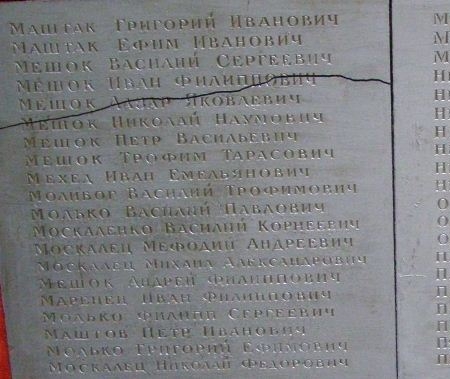 МАШТАК ГРИГОРИЙ ИВАНОВИЧ
МАШТАК ЕФИМ ИВАНОВИЧ
МЕШОК ВАСИЛИЙ СЕРГЕЕВИЧ
МЕШОК ИВАН ФИЛИППОВИЧ
МЕШОК ЛАЗАР ЯКОВЛЕВИЧ
МЕШОК НИКОЛАЙ НАУМОВИЧ
МЕШОК ПЕТР ВАСИЛЬЕВИЧ
МЕШОК ТРОФИМ ТАРАСОВИЧ
МЕХЕД ИВАН ЕМЕЛЬЯНОВИЧ
МОЛИБОГ ВАСИЛИЙ ТРОФИМОВИЧ
МОЛЬКО ВАСИЛИЙ ПАВЛОВИЧ
МОСКАЛЕНКО ВАСИЛИЙ КОРНЕЕВИЧ
МОСКАЛЕЦ МЕФОДИЙ АНДРЕЕВИЧ
МОСКАЛЕЦ МИХАИЛ АЛЕКСАНДРОВИЧ
МЕШОК АНДРЕЙ ФИЛИППОВИЧ
МАРЕНЕЦ ИВАН ФИЛИППОВИЧ
МОЛЬКО ФИЛИПП СЕРГЕЕВИЧ
МАШТОВ ПЕТР ИВАНОВИЧ
МОЛЬКО ГРИГОРИЙ ЕФИМОВИЧ
МОСКАЛЕЦ НИКОЛАЙ ФЕДОРОВИЧ